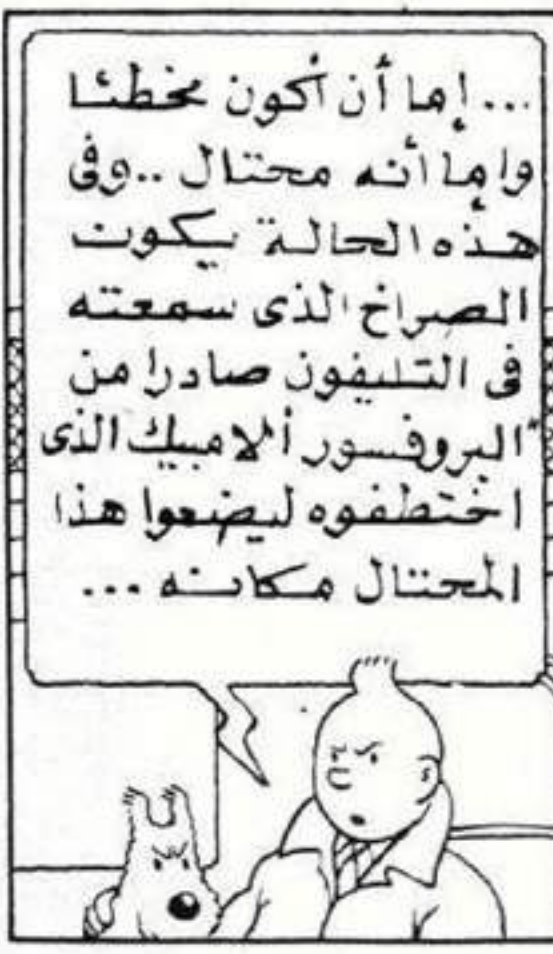 ...إما أن أكون مخطئا
وإما أنه محتال ..وفى
هذه الحالة يكون
الصراخ الذى سمعته
فى التليفون صادرا من
"البروفسور ألامبيك الذى
اختطفوه ليضعوا هذا
المحتال مكانه ...